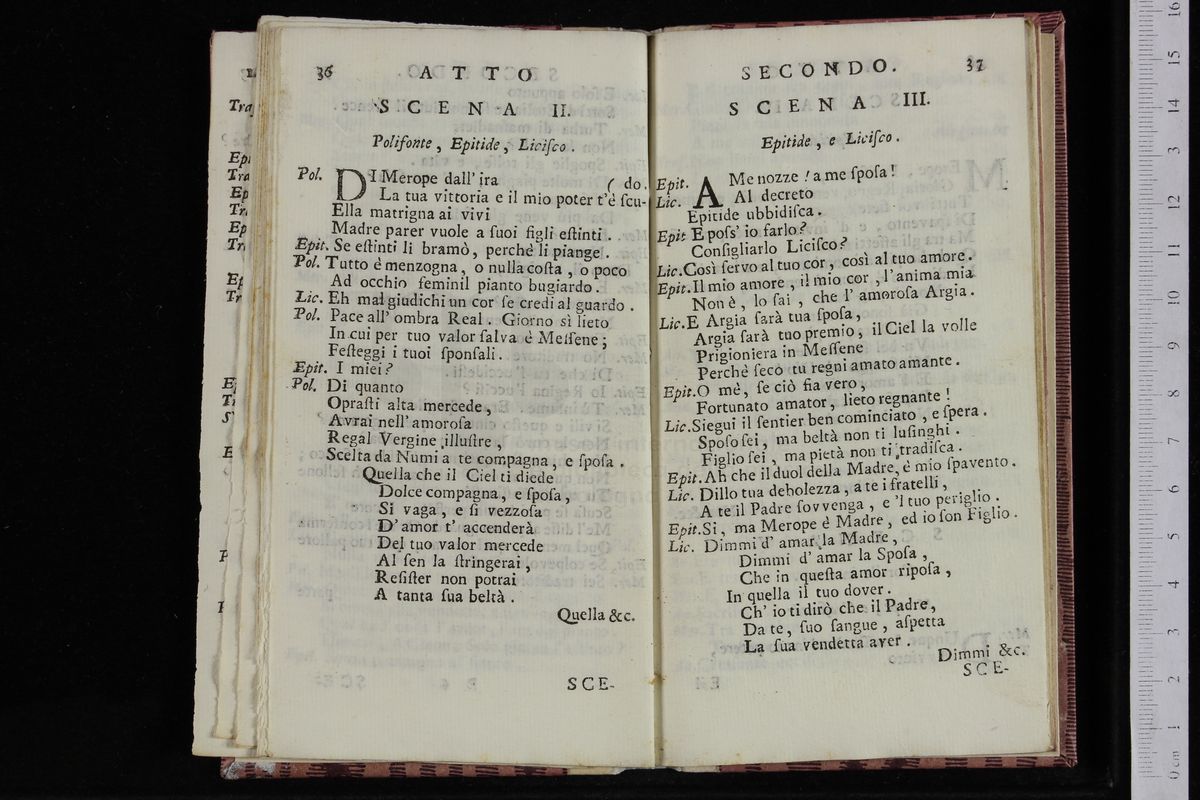 36 ATTO
SCENA II.
Polifonte, Epitide, Liciſco.
Pol. DI Merope dall' ira ( do.
La tua vittoria e il mio poter t'è ſcu-
Ella matrigna ai vivi
Madre parer vuole a ſuoi figli eſtinti.
Epit. Se eſtinti li bramò, perchè li piange?
Pol. Tutto è menzogna, o nulla coſta, o poco
Ad occhio feminil pianto bugiardo.
Lic. Eh mal giudichi un cor ſe credi al guardo.
Pol. Pace all' ombra Real. Giorno sì lieto
In cui per tuo valor ſalva é Meſſene;
Feſteggi i tuoi ſponſali.
Epit. I miei?
Pol. Di quanto
Opraſti alta mercede,
Avrai nell' amoroſa
Regal Vergine illuſtre,
Scelta da Numi a te compagna, e ſpoſa.
Quella che il Ciel ti diede
Dolce compagna, e ſpoſa,
Si vaga, e ſi vezzoſa
D' amor t' accenderà
Del tuo valor mercede
Al ſen la ſtringerai,
Reſiſter non potrai
A tanta ſua beltà.
Quella &c.
SCE-
SECONDO. 37
SCENA III.
Epitide, e Liciſco.
Epit. A Me nozze! a me ſpoſa!
Lic. Al decreto
Epitide ubbidiſca.
Epit E poſs' io farlo?
Conſigliarlo Liciſco?
Lic. Così ſervo al tuo cor, così al tuo amore.
Epit. Il mio amore, il mio cor, l'anima mia
Non è, lo ſai, che l' amoroſa Argia.
Lic. E Argia ſarà tua ſpoſa,
Argia ſarà tuo premio, il Ciel la volle
Prigioniera in Meſſene
Perchè ſeco tu regni amato amante.
Epit. O mè, ſe ciò fia vero,
Fortunato amator, lieto regnante!
Lic. Siegui il ſentier ben cominciato, e ſpera.
Spoſo ſei, ma beltà non ti luſinghi.
Figlio ſei, ma pietà non ti tradiſca.
Epit. Ah che il duol della Madre, è mio ſpavento.
Lic. Dillo tua debolezza, a te i fratelli,
A te il Padre ſovvenga, e 'l tuo periglio.
Epit. Si, ma Merope è Madre, ed io ſon Figlio.
Lic. Dimmi d' amar la Madre,
Dimmi d' amar la Spoſa,
Che in queſta amor ripoſa,
In quella il tuo dover.
Ch' io ti dirò che il Padre,
Da te, ſuo ſangue, aſpetta
La ſua vendetta aver.
Dimmi &c.
SCE-